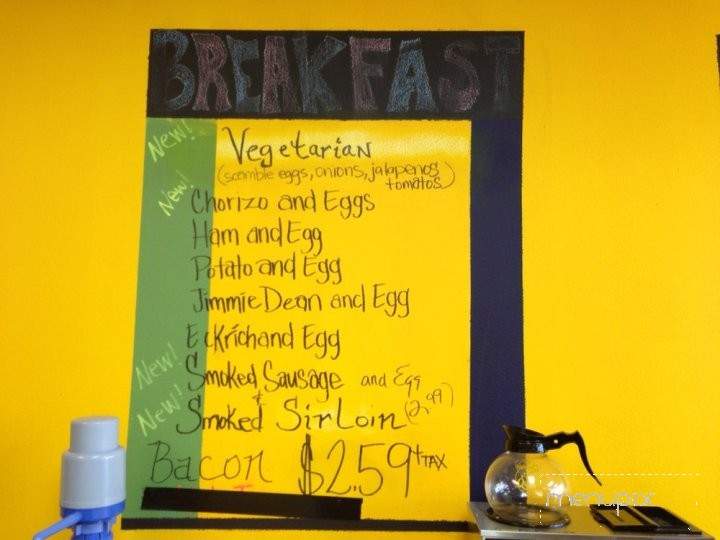 BREAKFAST
New! Vegetarian
(scramble eggs, onions, jalapenos
tomatos)
New! Chorizo and Eggs
Ham and Egg
Potato and Egg
Jimmie Dean and Egg
Eckrich and Egg
New! Smoked Sausage and Egg
New! Smoked & Sirloin (2.99)
Bacon $2.59 +TAX
menupix